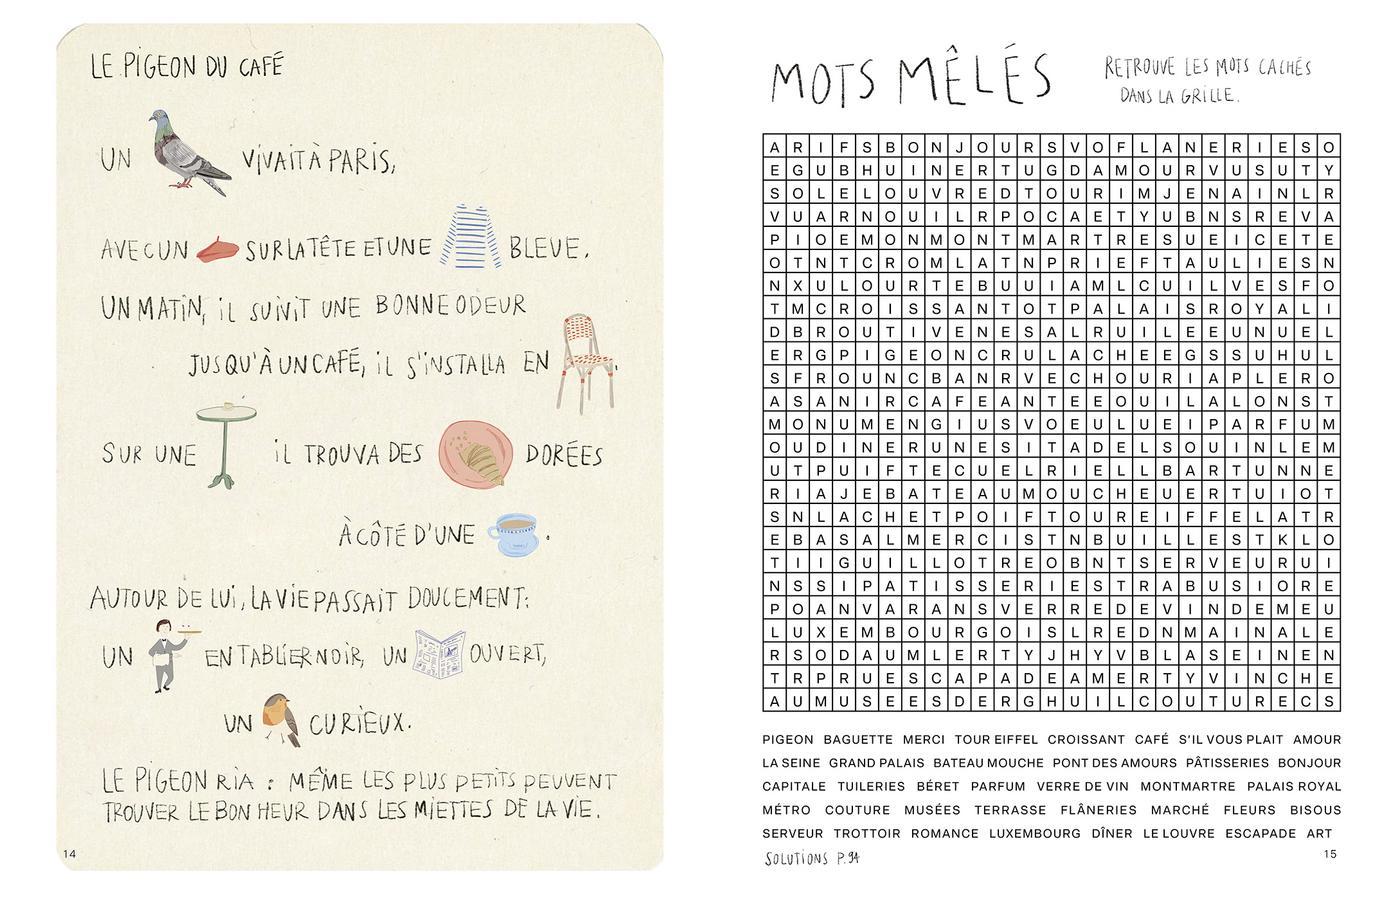 LE PIGEON DU CAFÉ
UN VIVAIT À PARIS,
AVEC UN SUR LA TÊTE ET UNE BLEUE.
UN MATIN, IL SUIVIT UNE BONNE ODEUR
JUSQU'À UN CAFÉ, IL S'INSTALLA EN .
SUR UNE IL TROUVA DES DORÉES
À CÔTÉ D'UNE .
AUTOUR DE LUI, LA VIE PASSAIT DOUCEMENT:
UN EN TABLIER NOIR, UN OUVERT,
UN CURIEUX.
LE PIGEON RIA : MÊME LES PLUS PETITS PEUVENT
TROUVER LE BONHEUR DANS LES MIETTES DE LA VIE.
14
MOTS MÊLÉS
RETROUVE LES MOTS CACHÉS
DANS LA GRILLE.
A R I F S B O N J O U R S V O F L A N E R I E S O
E G U B H U I N E R T U G D A M O U R V U S U T Y
S O L E L O U V R E D T O U R I M J E N A I N L R
V U A R N O U I L R P O C A E T Y U B N S R E V A
P I O E M O N M O N T M A R T R E S U E I C E T E
O T N T C R O M L A T N P R I E F T A U L I E S N
N X U L O U R T E B U U I A M L C U I L V E S F O
T M C R O I S S A N T O T P A L A I S R O Y A L I
D B R O U T I V E N E S A L R U I L E E U N U E L
E R G P I G E O N C R U L A C H E E G S S U H U L
S F R O U N C B A N R V E C H O U R I A P L E R O
A S A N I R C A F E A N T E E O U I L A L O N S T
M O N U M E N G I U S V O E U L U E I P A R F U M
O U D I N E R U N E S I T A D E L S O U I N L E M
U T P U I F T E C U E L R I E L L B A R T U N N E
R I A J E B A T E A U M O U C H E U E R T U I O T
S N L A C H E T P O I F T O U R E I F F E L A T R
E B A S A L M E R C I S T N B U I L L E S T K L O
T I I G U I L L O T R E O B N T S E R V E U R U I
N S S I P A T I S S E R I E S T R A B U S I O R E
P O A N V A R A N S V E R R E D E V I N D E M E U
L U X E M B O U R G O I S L R E D N M A I N A L E
R S O D A U M L E R T Y J H Y V B L A S E I N E N
T R P R U E S C A P A D E A M E R T Y V I N C H E
A U M U S E E S D E R G H U I L C O U T U R E C S
PIGEON BAGUETTE MERCI TOUR EIFFEL CROISSANT CAFÉ S'IL VOUS PLAIT AMOUR
LA SEINE GRAND PALAIS BATEAU MOUCHE PONT DES AMOURS PÂTISSERIES BONJOUR
CAPITALE TUILERIES BÉRET PARFUM VERRE DE VIN MONTMARTRE PALAIS ROYAL
MÉTRO COUTURE MUSÉES TERRASSE FLÂNERIES MARCHÉ FLEURS BISOUS
SERVEUR TROTTOIR ROMANCE LUXEMBOURG DÎNER LE LOUVRE ESCAPADE ART
SOLUTIONS P.94
15